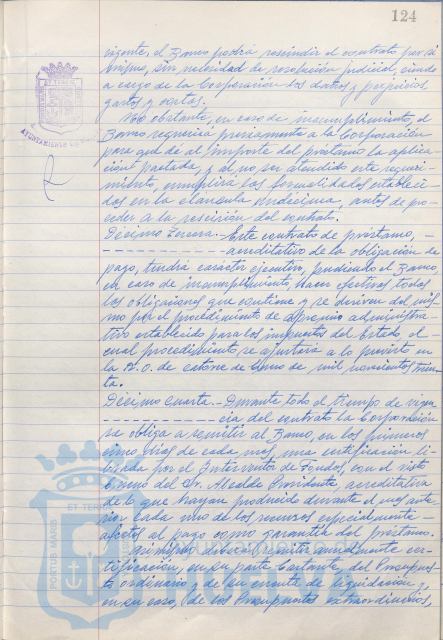 124
vigente, el Banco podrá rescindir el contrato por sí
mismo, sin necesidad de resolución judicial, siendo
a cargo de la Corporación los daños y perjuicios
gastos y costas.
No obstante, en caso de incumplimiento, el
Banco requerirá previamente a la Corporación
para que dé al importe del préstamo la aplica-
ción pactada, y al no ser atendido este requeri-
miento, cumplirá las formalidades estableci-
das en la cláusula undécima, antes de pro-
ceder a la rescisión del contrato.
Décimo Tercera.- Este contrato de préstamo,
acreditativo de la obligación de
pago, tendrá carácter ejecutivo, pudiendo el Banco
en caso de incumplimiento, hacer efectivas todas
las obligaciones que contiene y se deriven del mis-
mo por el procedimiento de apremio administra-
tivo establecido para los impuestos del Estado, el
cual procedimiento se ajustará a lo previsto en
la R.O. de catorce de Enero de mil novecientos trein-
ta.
Décimo cuarta.- Durante todo el tiempo de vigen-
cia del contrato la Corporación
se obliga a remitir al Banco, en los primeros
cinco días de cada mes, una certificación li-
brada por el Interventor de Fondos, con el visto
bueno del Sr. Alcalde Presidente, acreditativa
de lo que hayan producido durante el mes ante-
rior cada uno de los recursos especialmente
afectos al pago como garantía del préstamo.
Asimismo deberá remitir anualmente cer-
tificación, en su parte bastante, del Presupues-
to ordinario y de su cuenta de liquidación y,
en su caso, de los Presupuestos extraordinarios,
AYUNTAMIENTO
ET TERRIS
PORTUS MARIS